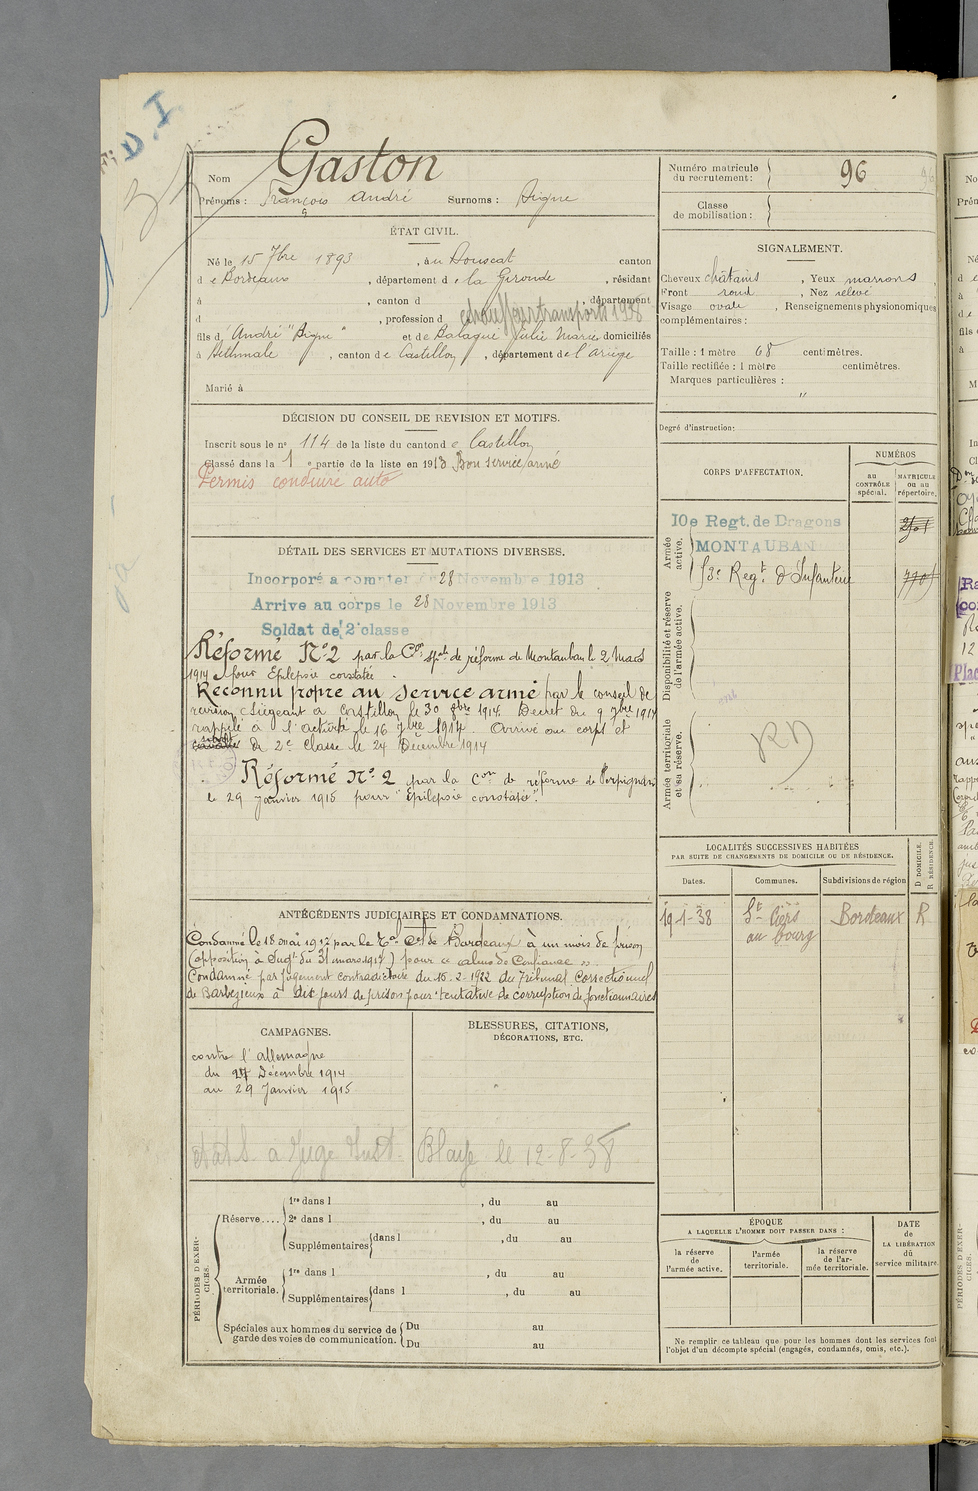 D.I
Nom Gaston
Prénoms : François André Surnoms : Digne
ÉTAT CIVIL.
Né le 15 7bre 1893, à u Bouscat canton
d e Bordeaux, département d e la Gironde, résidant
à , canton d , département
d , profession d chauffeur transports 1938
fils d' "André" "Digne" et de Balagué Julie Marie domiciliés
à , canton de Castillon, département de l'Ariège
Marié à
DÉCISION DU CONSEIL DE REVISION ET MOTIFS.
Inscrit sous le n° 114 de la liste du canton d e Castillon
Classé dans la 1 e partie de la liste en 1913 Bon service armé
Permis conduire auto
DÉTAIL DES SERVICES ET MUTATIONS DIVERSES.
Incorporé a compter du 28 Novembre 1913
Arrive au corps le 28 Novembre 1913
Soldat de 2e classe
Réformé N°2 par la Con spale de réforme de Montauban le 2 Mars
1914 pour Epilepsie constatée.
Reconnu propre au Service armé par le conseil de
revision siégeant à Castillon le 30 8bre 1914. Décret du 9 7bre 1914
rappelé à l'activité le 16 1914. Arrivé au corps et
soldat de 2e classe le 24 Décembre 1914
Réformé N° 2 par la Con de réforme de Perpignan
le 29 Janvier 1915 pour "Epilepsie constatée".
ANTÉCÉDENTS JUDICIAIRES ET CONDAMNATIONS.
Condamné le 18 mai 1917 par le Tal Cel de Bordeaux à un mois de prison
(opposition à Jugt du 31 mars 1917) pour "abus de Confiance".
Condamné par jugement contradictoire du 15.2.1922 du Tribunal Correctionnel
de Barbezieux à dix jours de prison pour "tentative de corruption de fonctionnaires
CAMPAGNES.
contre l'allemagne
du 24 Décembre 1914
au 29 Janvier 1915
BLESSURES, CITATIONS,
DÉCORATIONS, ETC.
"
état S. à Juge Inst. Blaye le 12-8-38
PÉRIODES D'EXERCICES.
Réserve....
1re dans l , du au
2e dans l , du au
Supplémentaires dans l , du au
Armée territoriale.
1re dans l , du au
Supplémentaires dans l , du au
Spéciales aux hommes du service de garde des voies de communication.
Du au
Du au
Numéro matricule
du recrutement : 96
Classe
de mobilisation :
SIGNALEMENT.
Cheveux châtains, Yeux marrons,
Front rond, Nez relevé
Visage ovale, Renseignements physionomiques
complémentaires :
Taille : 1 mètre 68 centimètres.
Taille rectifiée : 1 mètre centimètres.
Marques particulières :
"
Degré d'instruction:
CORPS D'AFFECTATION.
NUMÉROS
au
CONTRÔLE
spécial.
MATRICULE
ou au
répertoire.
Armée
active.
10e Regt. de Dragons
MONTAUBAN
53e Regt d'Infanterie
Disponibilité et réserve
de l'armée active.
Armée territoriale
et sa réserve.
LOCALITÉS SUCCESSIVES HABITÉES
PAR SUITE DE CHANGEMENTS DE DOMICILE OU DE RÉSIDENCE.
Dates. Communes. Subdivisions de région
D DOMICILE.
R RÉSIDENCE.
19-1-38 St Ciers Bordeaux R
ÉPOQUE
A LAQUELLE L'HOMME DOIT PASSER DANS :
la réserve
de
l'armée active.
l'armée
territoriale.
la réserve
de l'ar-
mée territoriale.
DATE
de
LA LIBÉRATION
du
service militaire.
Ne remplir ce tableau que pour les hommes dont les services font
l'objet d'un décompte spécial (engagés, condamnés, omis, etc.).